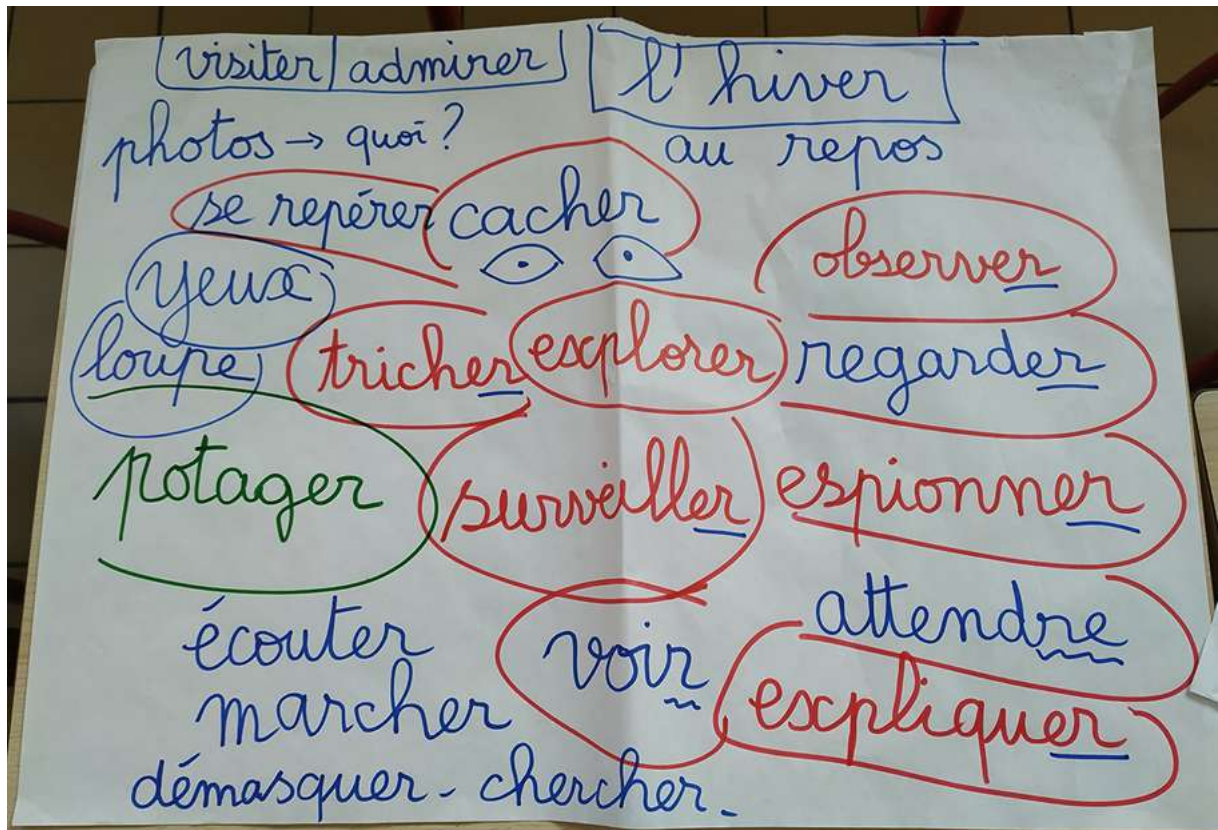 visiter admirer l'hiver
photos → quoi? au repos
se repérer cacher
observer
yeux
loupe tricher explorer regarder
potager surveiller espionner
écouter voir attendre
marcher expliquer
démasquer - chercher -